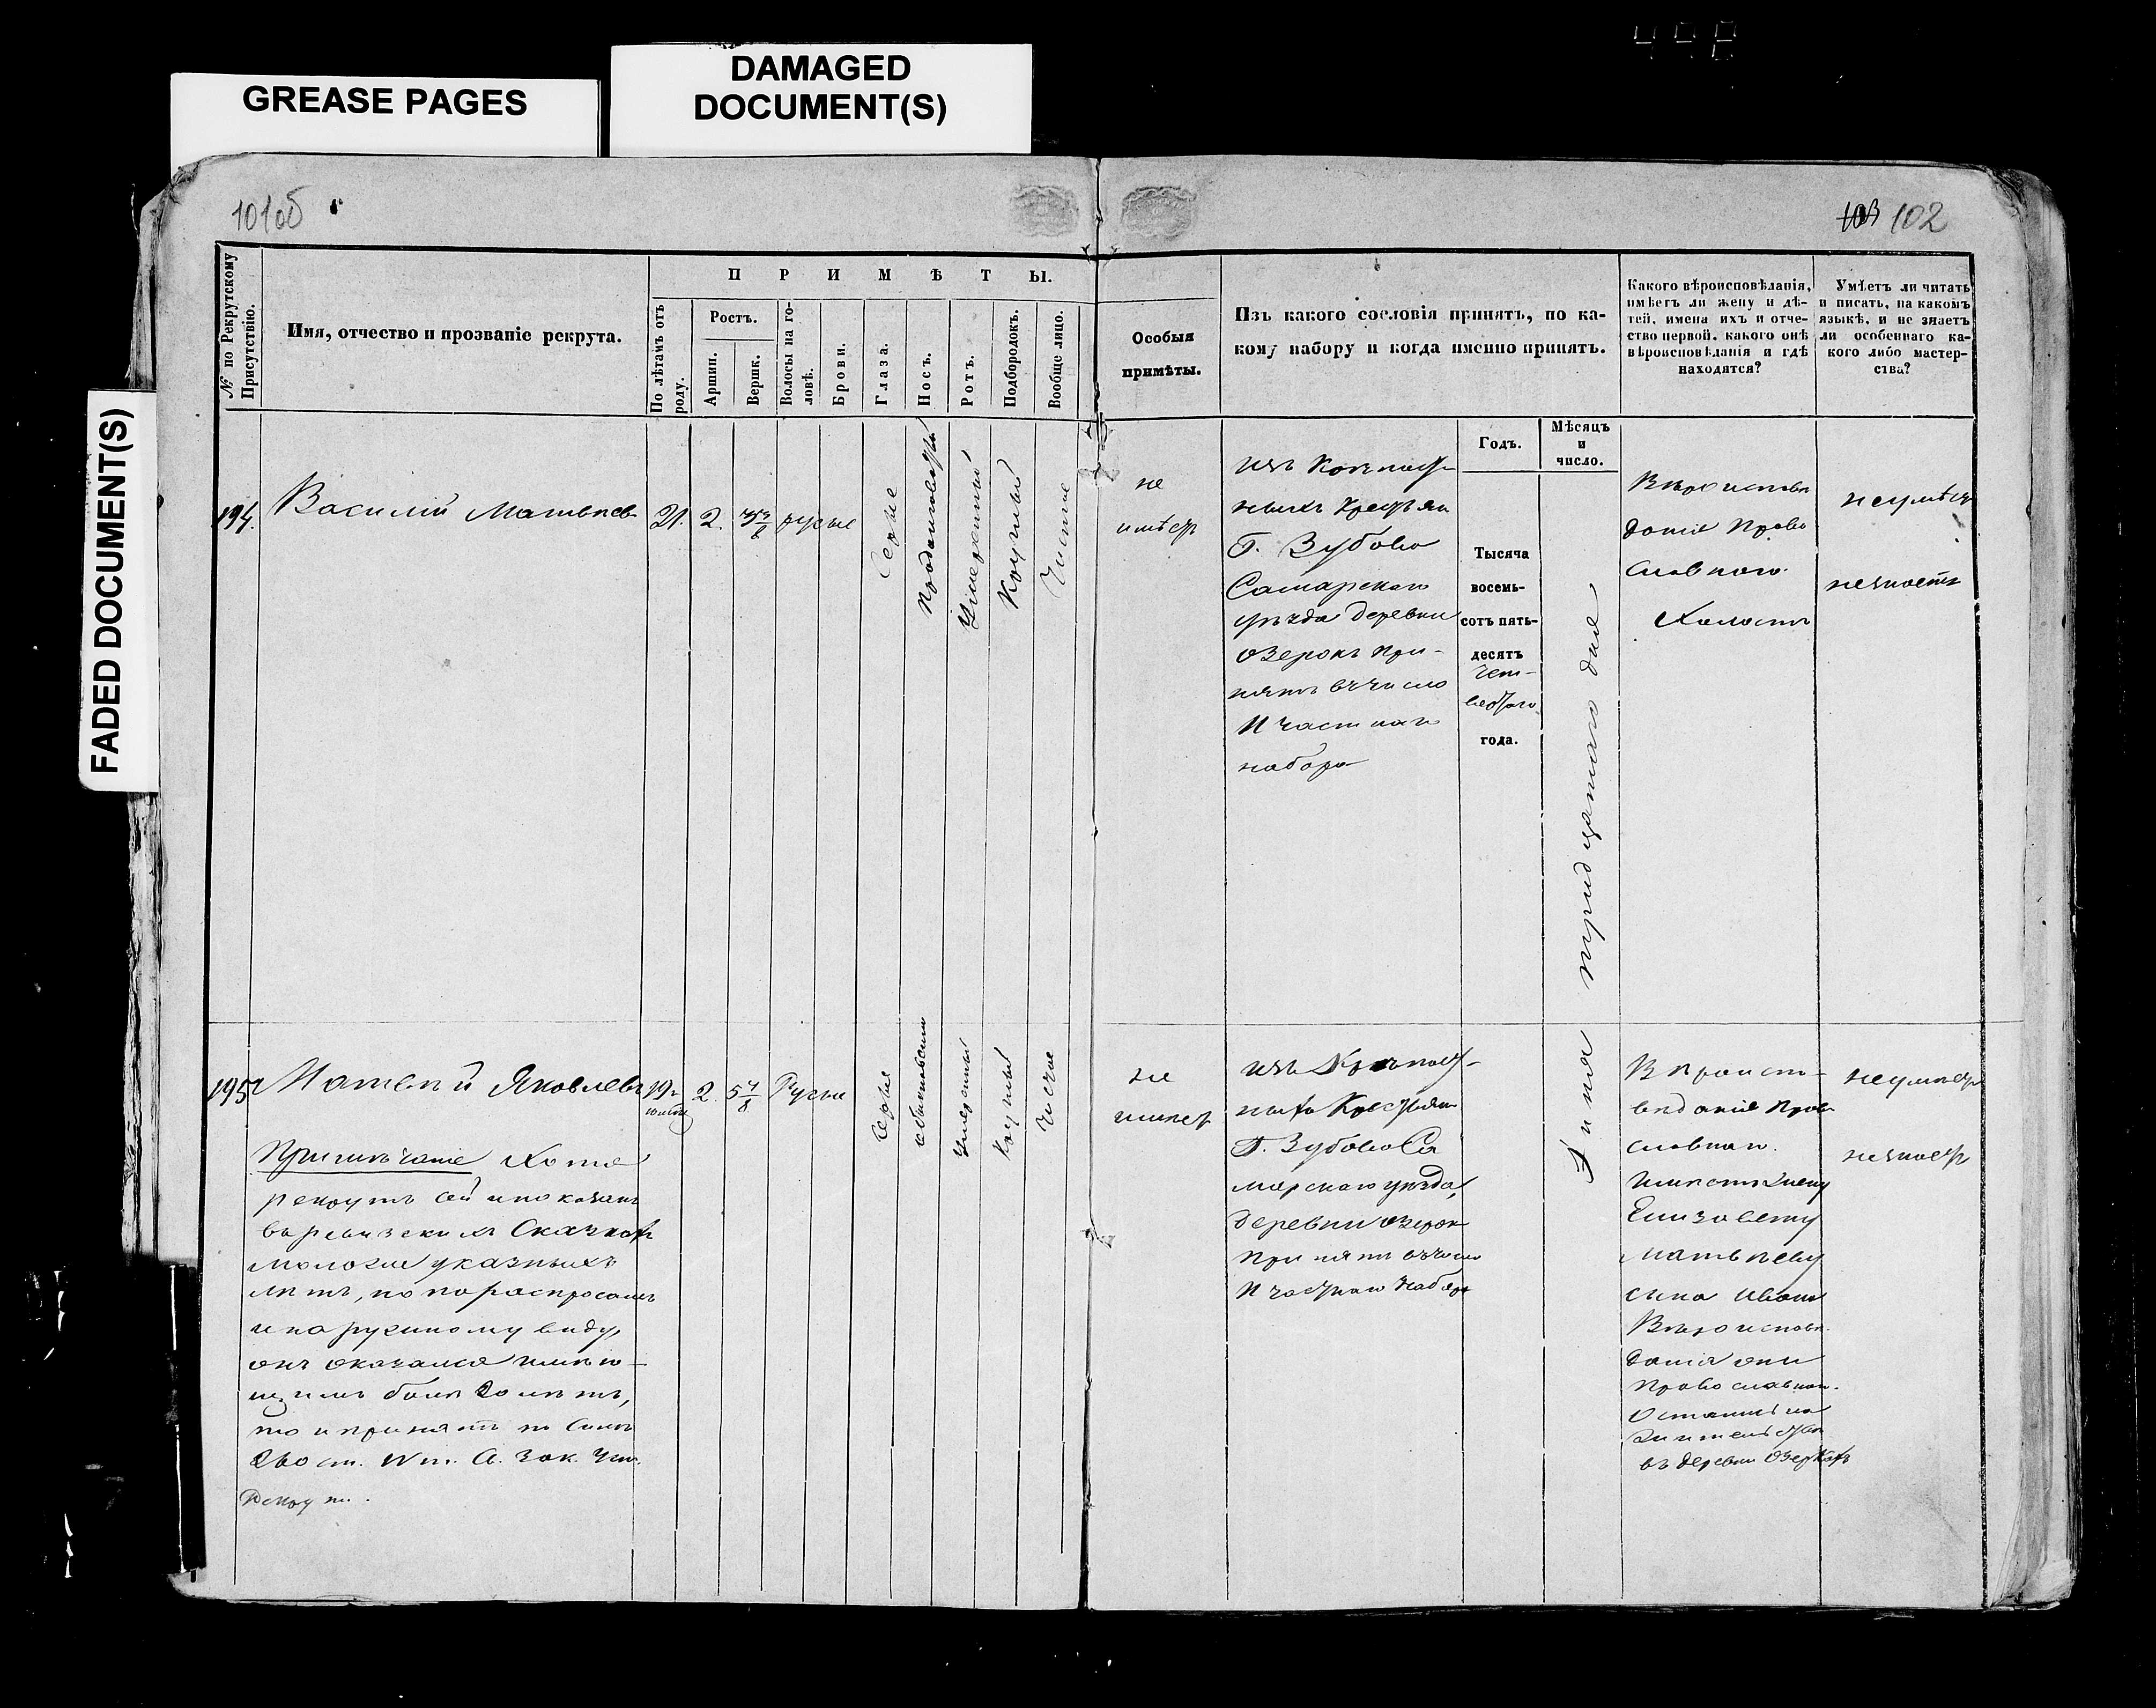 GREASE PAGES
DAMAGED
DOCUMENT(S)
FADED DOCUMENT(S)
101об
103 102
№ по Рекрутскому
Присутствію.
Имя, отчество и прозваніе рекрута.
ПРИМѢТЫ.
По лѣтамъ отъ
роду.
Ростъ.
Аршин.
Вершк.
Волосы на го-
ловѣ.
Брови.
Глаза.
Носъ.
Ротъ.
Подбородокъ.
Вообще лицо.
Особыя
примѣты.
Изъ какого сословія принятъ, по ка-
кому набору и когда именно принятъ.
Какого вѣроисповѣданія,
имѣетъ ли жену и дѣ-
тей, имена ихъ и отче-
ство первой, какого онѣ
вѣроисповѣданія и гдѣ
находятся?
Умѣетъ ли читать
и писать, на какомъ
языкѣ, и не знаетъ
ли особеннаго ка-
кого либо мастер-
ства?
Годъ.
Мѣсяцъ
и
число.
194.
Василій Матвѣев
21.
2.
русые
Серые
Продолговатый
Умеренный
Круглый
Чистое
не
имѣетъ
изъ Крѣпост
ныхъ Крестьян
Г. Зубова
Самарскаго
уѣзда деревни
Озерокъ при-
нятъ въ число
11 частнаго
набора
Тысяча
восемь-
сотъ пять-
десятъ
чет-
вертаго
года.
Іюня тридцатаго дня
Вѣроисповѣ
данія Право
славнаго.
Холостъ
неумѣетъ
незнаетъ
195
Матвѣй Яковлевъ
19
2.
5 7/8
Русые
Серые
обыкновенный
Умеренный
Круглый
Чистое
не
имѣетъ
изъ Крѣпост-
ныхъ Крестьян
Г. Зубова Са
марскаго уѣзда,
деревни Озерокъ
Принятъ въ число
11 частнаго набора
Вѣроиспо-
вѣданія Право
славнаго.
Имѣетъ жену
Елизавету
Матвѣеву
сына Ивана
Вѣроисповѣ
данія они
православнаго.
Остались на
жительствѣ
въ деревнѣ Озеркахъ
неумѣетъ
незнаетъ
Примѣчаніе Хотя
рекрутъ сей и показанъ
въ ревизскихъ сказкахъ
моложе указныхъ
лѣтъ, но по распросамъ
и наружному виду,
онъ оказался имѣю-
щимъ болѣе 20 лѣтъ,
то и принятъ по силѣ
Рекрут.